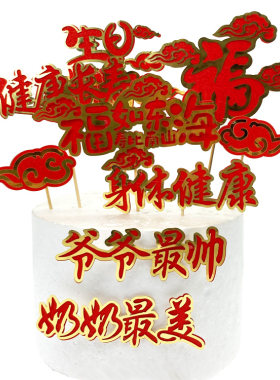 生日
健康长寿
福
福如东海
寿比南山
身体健康
爷爷最帅
奶奶最美